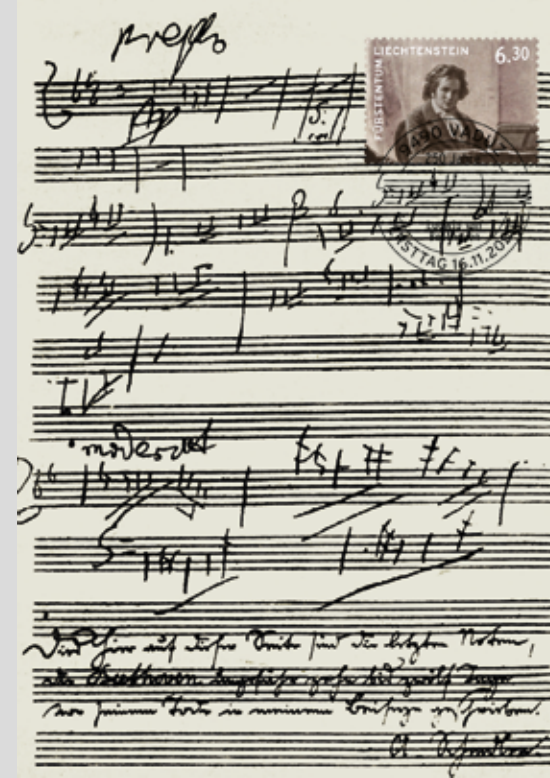 FÜRSTENTUM LIECHTENSTEIN 6.30
9490 VADU
250
STTAG 16.11.20
moderat
Dies hier auf dieser Seite sind die letzten Noten,
die Beethoven ungefähr zehn bis zwölf Tage
vor seinem Tode in meinem Beiseyn geschrieben.
A. Schindler